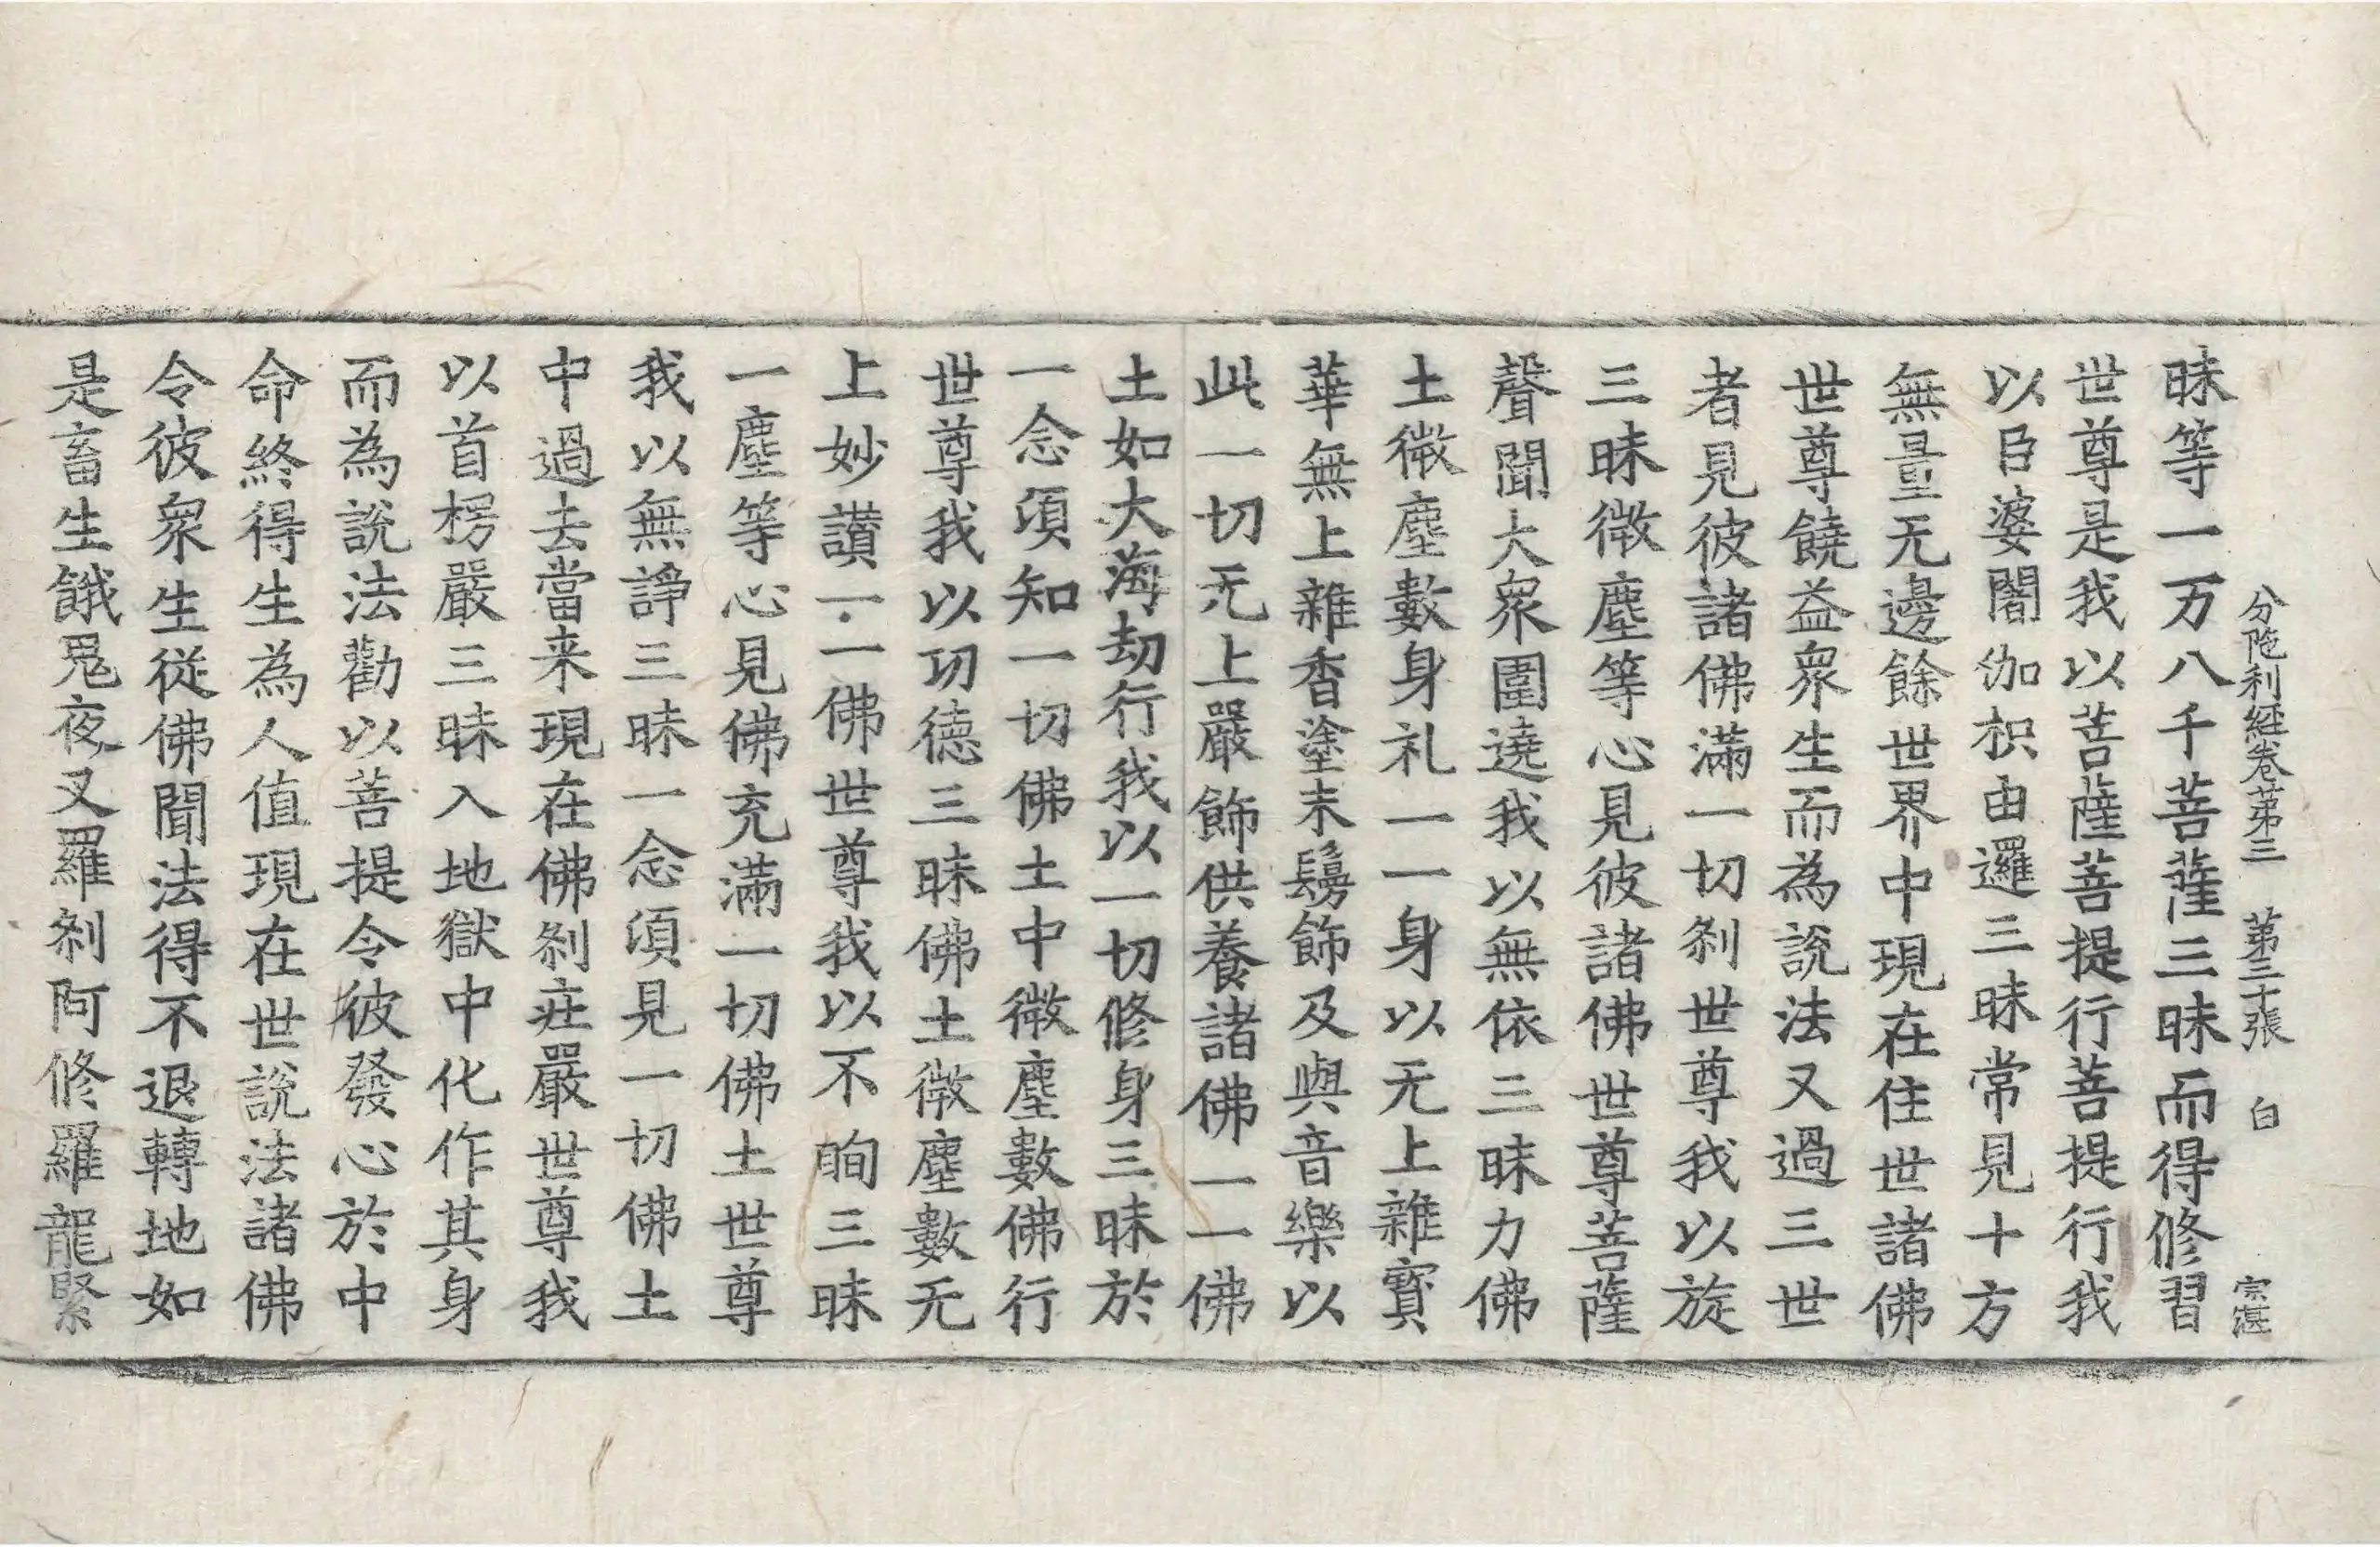 分陁利經卷第三　第三十張　白　宗湛
昧等一万八千菩薩三昧而得修習
世尊是我以菩薩菩提行菩提行我
以㠯婆闍伽枳由邏三昧常見十方
無量无邊餘世界中現在住世諸佛
世尊饒益衆生而為說法又過三世
者見彼諸佛滿一切剎世尊我以旋
三昧微塵等心見彼諸佛世尊菩薩
聲聞大衆圍遶我以無依三昧力佛
土微塵數身礼一一身以无上雜寶
華無上雜香塗末鬘飾及與音樂以
此一切无上嚴飾供養諸佛一一佛
土如大海劫行我以一切修身三昧於
一念湏知一切佛土中微塵數佛行
世尊我以功德三昧佛土微塵數无
上妙讃一一佛世尊我以不眴三昧
一塵等心見佛充滿一切佛土世尊
我以無諍三昧一念湏見一切佛土
中過去當来現在佛剎荘嚴世尊我
以首楞嚴三昧入地獄中化作其身
而為說法勸以菩提令彼發心於中
命終得生為人值現在世說法諸佛
令彼衆生從佛聞法得不退轉地如
是畜生餓鬼夜叉羅剎阿修羅龍緊